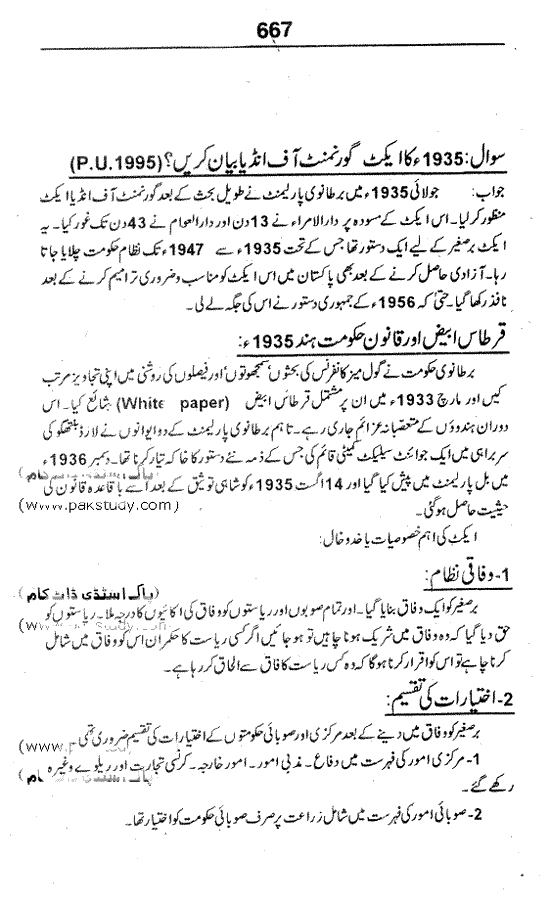 667
سوال: 1935ء کا ایکٹ گورنمنٹ آف انڈیا بیان کریں؟ (P.U.1995)
جواب: جولائی 1935ء میں برطانوی پارلیمنٹ نے طویل بحث کے بعد گورنمنٹ آف انڈیا ایکٹ
منظور کر لیا۔ اس ایکٹ کے مسودہ پر دارالامراء نے 13 دن اور دارالعوام نے 43 دن تک غور کیا۔ یہ
ایکٹ برصغیر کے لیے ایک دستور تھا جس کے تحت 1935ء سے 1947ء تک نظام حکومت چلایا جاتا
رہا۔ آزادی حاصل کرنے کے بعد بھی پاکستان میں اس ایکٹ کو مناسب و ضروری ترامیم کرنے کے بعد
نافذ رکھا گیا۔ حتیٰ کہ 1956ء کے جمہوری دستور نے اس کی جگہ لے لی۔
قرطاس ابیض اور قانون حکومت ہند 1935ء:
برطانوی حکومت نے گول میز کانفرنس کی بحثوں، سمجھوتوں اور فیصلوں کی روشنی میں اپنی تجاویز مرتب
کیں اور مارچ 1933ء میں ان پر مشتمل قرطاس ابیض (White paper) شائع کیا۔ اس
دوران ہندوؤں کے متعصبانہ عزائم جاری رہے۔ تاہم برطانوی پارلیمنٹ کے دو ایوانوں نے لارڈ بلتھگو کی
سربراہی میں ایک جوائنٹ سلیکٹ کمیٹی قائم کی جس کے ذمہ نئے دستور کا خاکہ تیار کرنا تھا۔ دسمبر 1936ء
میں بل پارلیمنٹ میں پیش کیا گیا اور 14 اگست 1935ء کو شاہی توثیق کے بعد اسے باقاعدہ قانون کی
(www.pakstudy.com)
حیثیت حاصل ہو گئی۔
ایکٹ کی اہم خصوصیات یا خدوخال:
1- وفاقی نظام:
(پاک اسٹڈی ڈاٹ کام)
برصغیر کو ایک وفاق بنایا گیا۔ اور تمام صوبوں اور ریاستوں کو وفاق کی اکائیوں کا درجہ ملا۔ ریاستوں کو
حق دیا گیا کہ وہ وفاق میں شریک ہونا چاہیں تو ہو جائیں اگر کسی ریاست کا حکمران اس کو وفاق میں شامل
کرنا چاہے تو اس کو اقرار کرنا ہوگا کہ وہ کس ریاست کا فاق سے الحاق کر رہا ہے۔
2- اختیارات کی تقسیم:
برصغیر کو وفاق میں دینے کے بعد مرکزی اور صوبائی حکومتوں کے اختیارات کی تقسیم ضروری تھی
1- مرکزی امور کی فہرست میں دفاع۔ مذہبی امور۔ امور خارجہ۔ کرنسی تجارت اور ریلوے وغیرہ
رکھے گئے۔
2- صوبائی امور کی فہرست میں شامل زراعت پر صرف صوبائی حکومت کو اختیار تھا۔